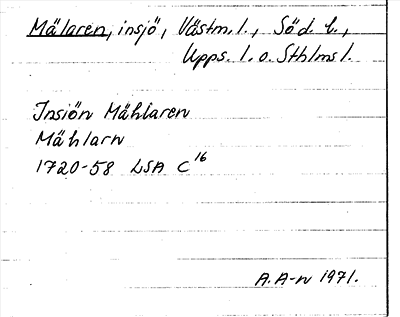 Mälaren, insjö, Västm. l., Söd. l.,
Upps. l. o. Sthlms l.
Insiön Mählaren
Mählarn
1720-58 LSA C16
A. A-n 1971.